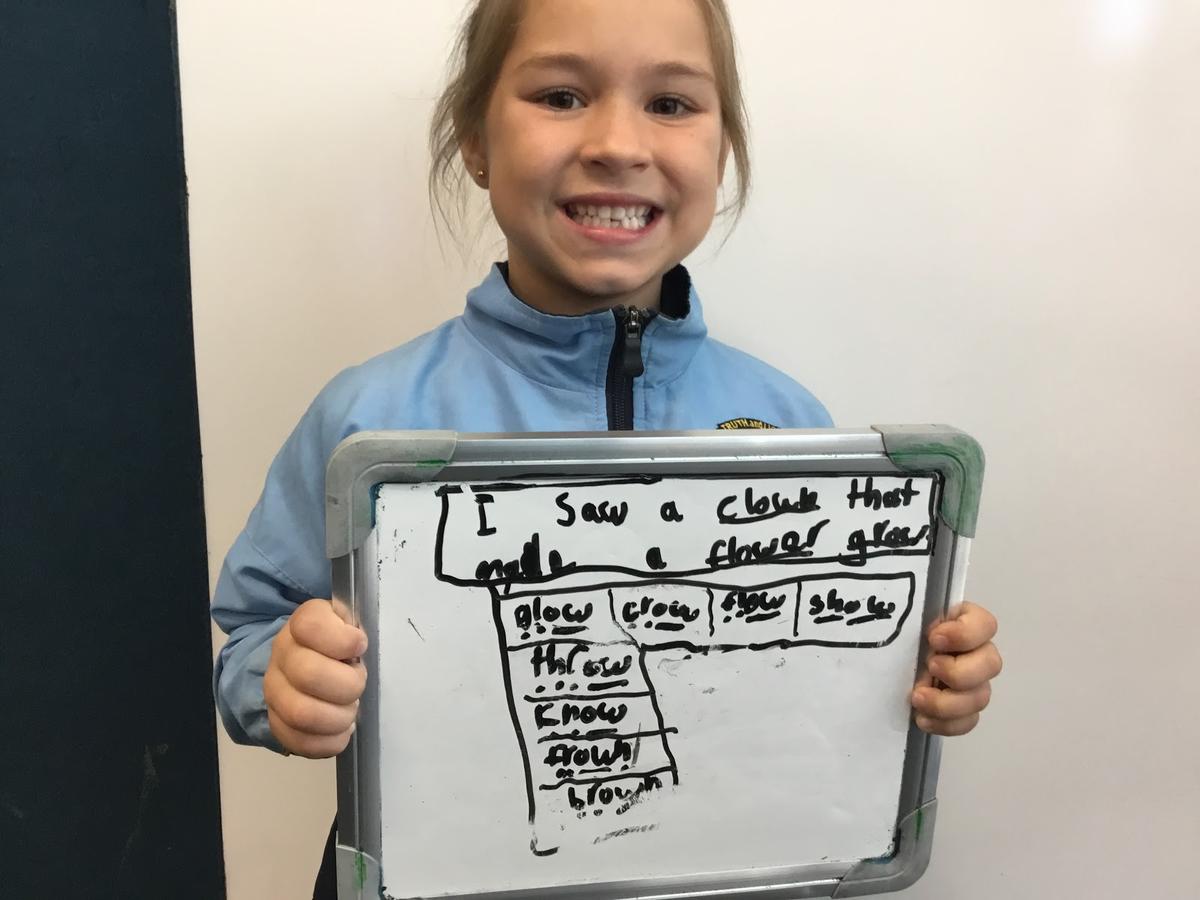 TRUTH and
I saw a clown that
made a flower grow
glow crow flow show
throw
know
frown
brown